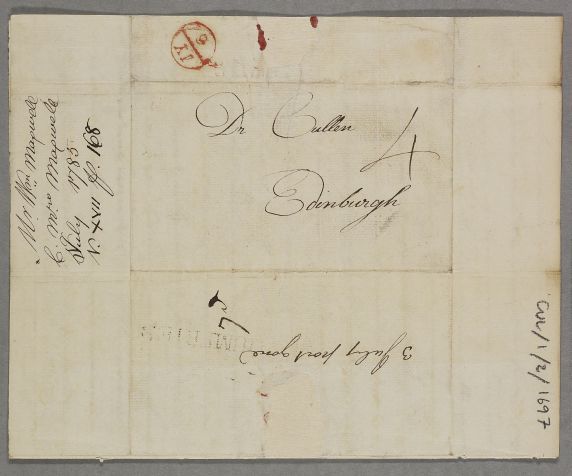 Dr Cullen
4
Edinburgh
Mr Wm Maxwell
C. Mrs Maxwell
July 1785
V. XVII f. 168
JY
6
3 July post gone
CUL/1/2/1697